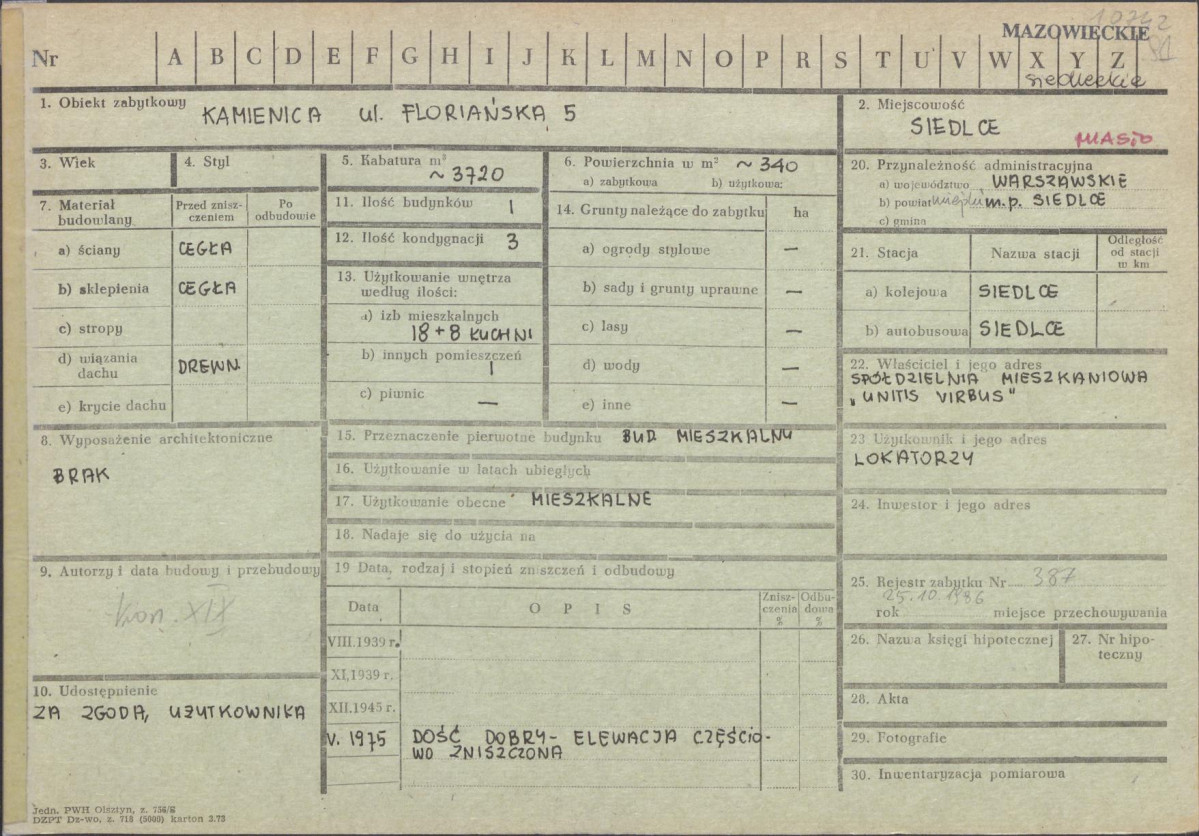 10242
MAZOWIECKIE
Nr A B C D E F G H I J K L M N O P R S T U V W X Y Z
siedleckie
1. Obiekt zabytkowy
KAMIENICA ul. FLORIAŃSKA 5
2. Miejscowość
SIEDLCE
MIASTO
3. Wiek
4. Styl
5. Kabatura m³
~ 3720
6. Powierzchnia w m² ~ 340
a) zabytkowa b) użytkowa:
20. Przynależność administracyjna
a) województwo WARSZAWSKIE
b) powiat miejski m.p. SIEDLCE
c) gmina
7. Materiał budowlany
Przed zniszczeniem
Po odbudowie
a) ściany CEGŁA
b) sklepienia CEGŁA
c) stropy
d) wiązania dachu DREWN.
e) krycie dachu
11. Ilość budynków 1
12. Ilość kondygnacji 3
13. Użytkowanie wnętrza
według ilości:
a) izb mieszkalnych
18 + 8 KUCHNI
b) innych pomieszczeń
1
c) piwnic
—
14. Grunty należące do zabytku ha
a) ogrody stylowe —
b) sady i grunty uprawne —
c) lasy —
d) wody —
e) inne —
21. Stacja
Nazwa stacji
Odległość
od stacji
w km
a) kolejowa SIEDLCE
b) autobusowa SIEDLCE
22. Właściciel i jego adres
SPÓŁDZIELNIA MIESZKANIOWA
„UNITIS VIRBUS"
8. Wyposażenie architektoniczne
BRAK
15. Przeznaczenie pierwotne budynku BUD MIESZKALNY
16. Użytkowanie w latach ubiegłych
17. Użytkowanie obecne MIESZKALNE
18. Nadaje się do użycia na
23 Użytkownik i jego adres
LOKATORZY
24. Inwestor i jego adres
9. Autorzy i data budowy i przebudowy
kon. XIX
19 Data, rodzaj i stopień zniszczeń i odbudowy
Data
OPIS
Znisz-
czenia
%
Odbu-
dowa
%
VIII.1939 r.
XI.1939 r.
XII.1945 r.
V. 1975 DOŚĆ DOBRY - ELEWACJA CZĘŚCIO-
WO ZNISZCZONA
25. Rejestr zabytku Nr 387
25.10.1986
rok miejsce przechowywania
26. Nazwa księgi hipotecznej
27. Nr hipo-
teczny
10. Udostępnienie
ZA ZGODĄ UŻYTKOWNIKA
28. Akta
29. Fotografie
30. Inwentaryzacja pomiarowa
Jedn. PWH Olsztyn, z. 756/E
DZPT Dz-wo, z. 718 (5000) karton 3.73